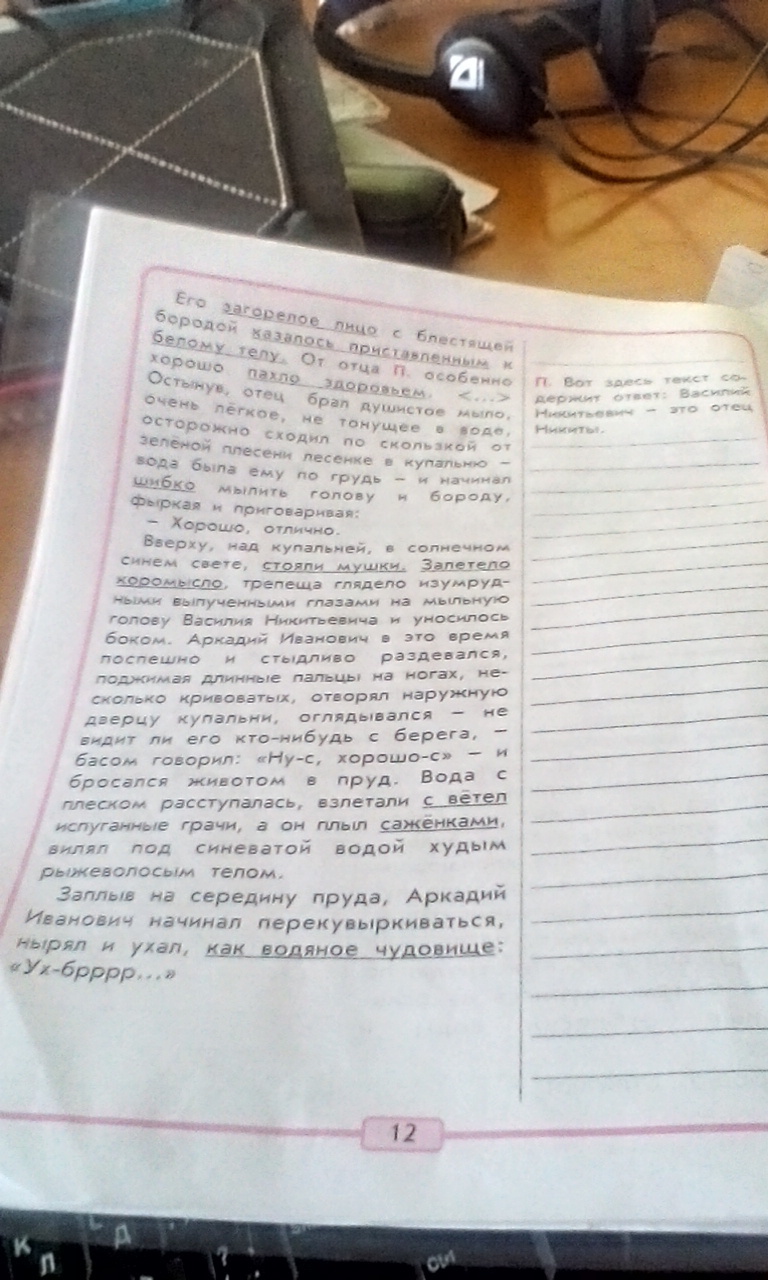 Его загорелое лицо с блестящей
бородой казалось приставленным к
белому телу. От отца П. особенно
хорошо пахло здоровьем. <...>
Остынув, отец брал душистое мыло,
очень лёгкое, не тонущее в воде,
осторожно сходил по скользкой от
зелёной плесени лесенке в купальню –
вода была ему по грудь – и начинал
шибко мылить голову и бороду,
фыркая и приговаривая:
– Хорошо, отлично.
Вверху, над купальней, в солнечном
синем свете, стояли мушки. Залетело
коромысло, трепеща глядело изумруд-
ными выпученными глазами на мыльную
голову Василия Никитьевича и уносилось
боком. Аркадий Иванович в это время
поспешно и стыдливо раздевался,
поджимая длинные пальцы на ногах, не-
сколько кривоватых, отворял наружную
дверцу купальни, оглядывался – не
видит ли его кто-нибудь с берега, –
басом говорил: «Ну-с, хорошо-с» – и
бросался животом в пруд. Вода с
плеском расступалась, взлетали с вётел
испуганные грачи, а он плыл сажёнками,
вилял под синеватой водой худым
рыжеволосым телом.
Заплыв на середину пруда, Аркадий
Иванович начинал перекувыркиваться,
нырял и ухал, как водяное чудовище:
«Ух-брррр...»
П. Вот здесь текст со-
держит ответ: Василий
Никитьевич – это отец
Никиты.
12
К
Д
Л
?
Ctrl